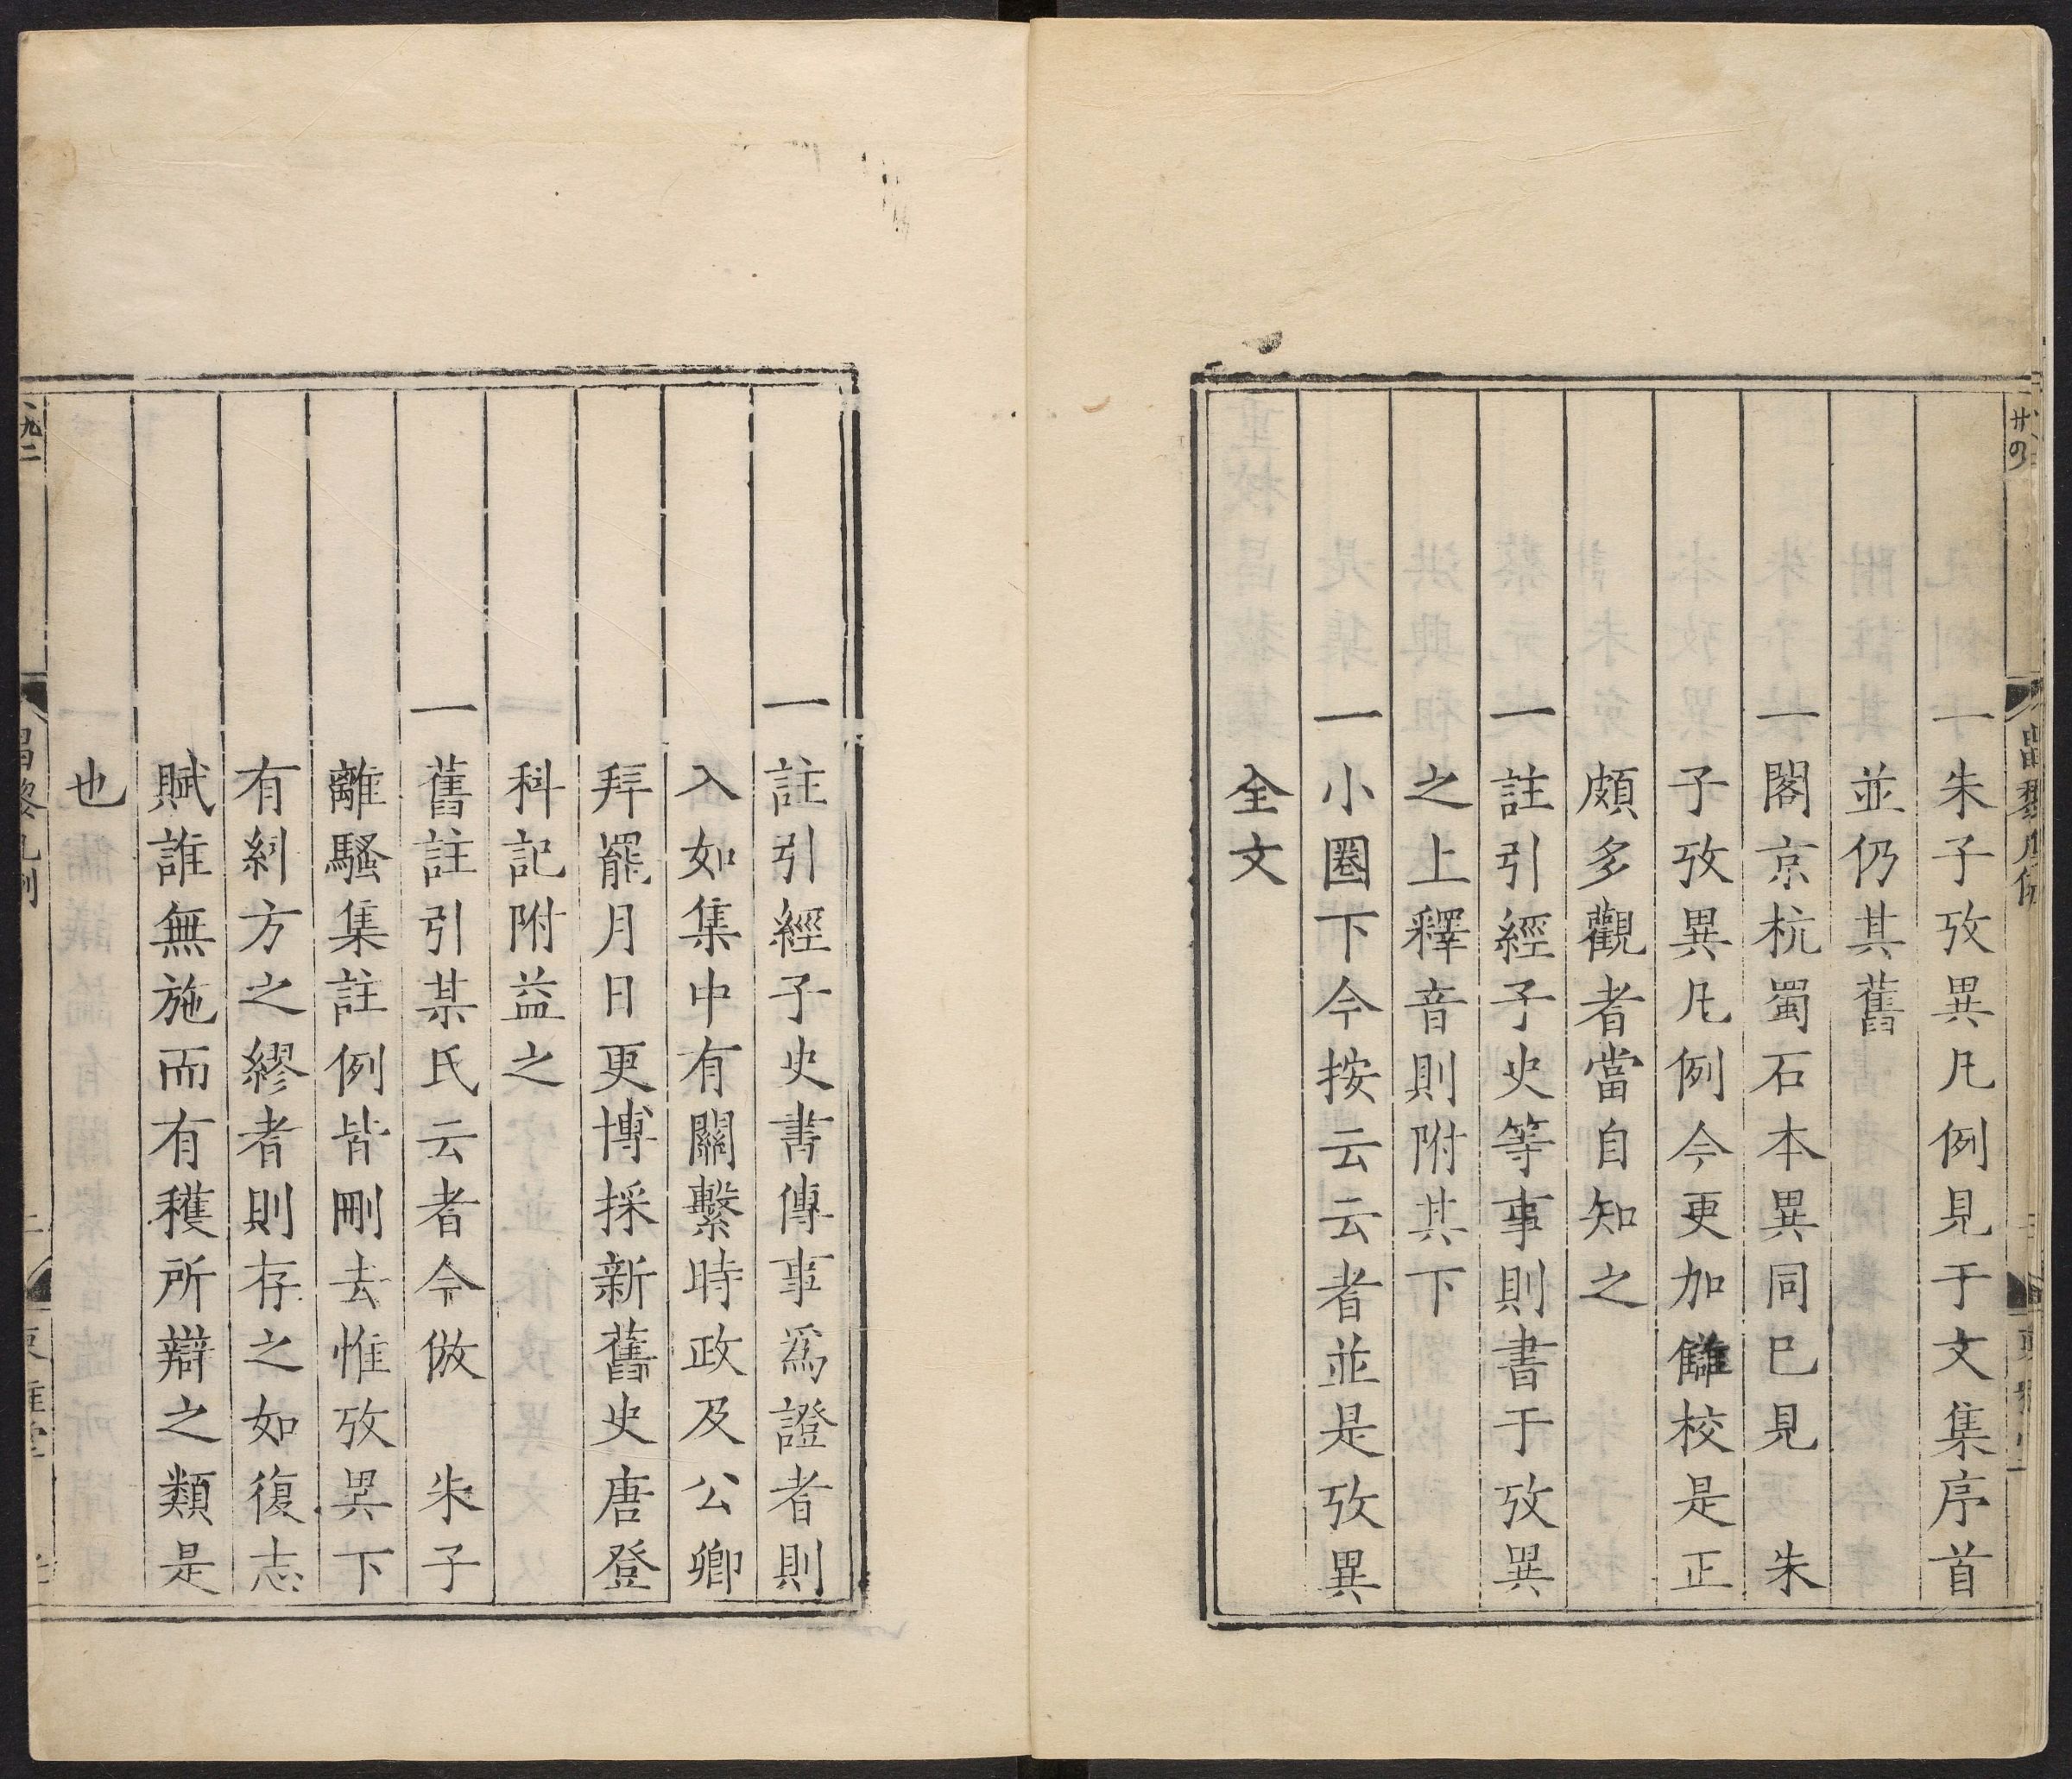 一朱子攷異凡例見于文集序首
並仍其舊
一閣京杭蜀石本異同巳見　朱
子攷異凡例今更加讎校是正
頗多觀者當自知之
一註引經子史等事則書于攷異
之上釋音則附其下
一小圈下今按云云者並是攷異
全文
一註引經子史書傳事爲證者則
入如集中有關繫時政及公卿
拜罷月日更博採新舊史唐登
科記附益之
一舊註引某氏云者今倣　朱子
離騷集註例皆刪去惟攷異下
有糾方之繆者則存之如復志
賦誰無施而有穫所辯之類是
也